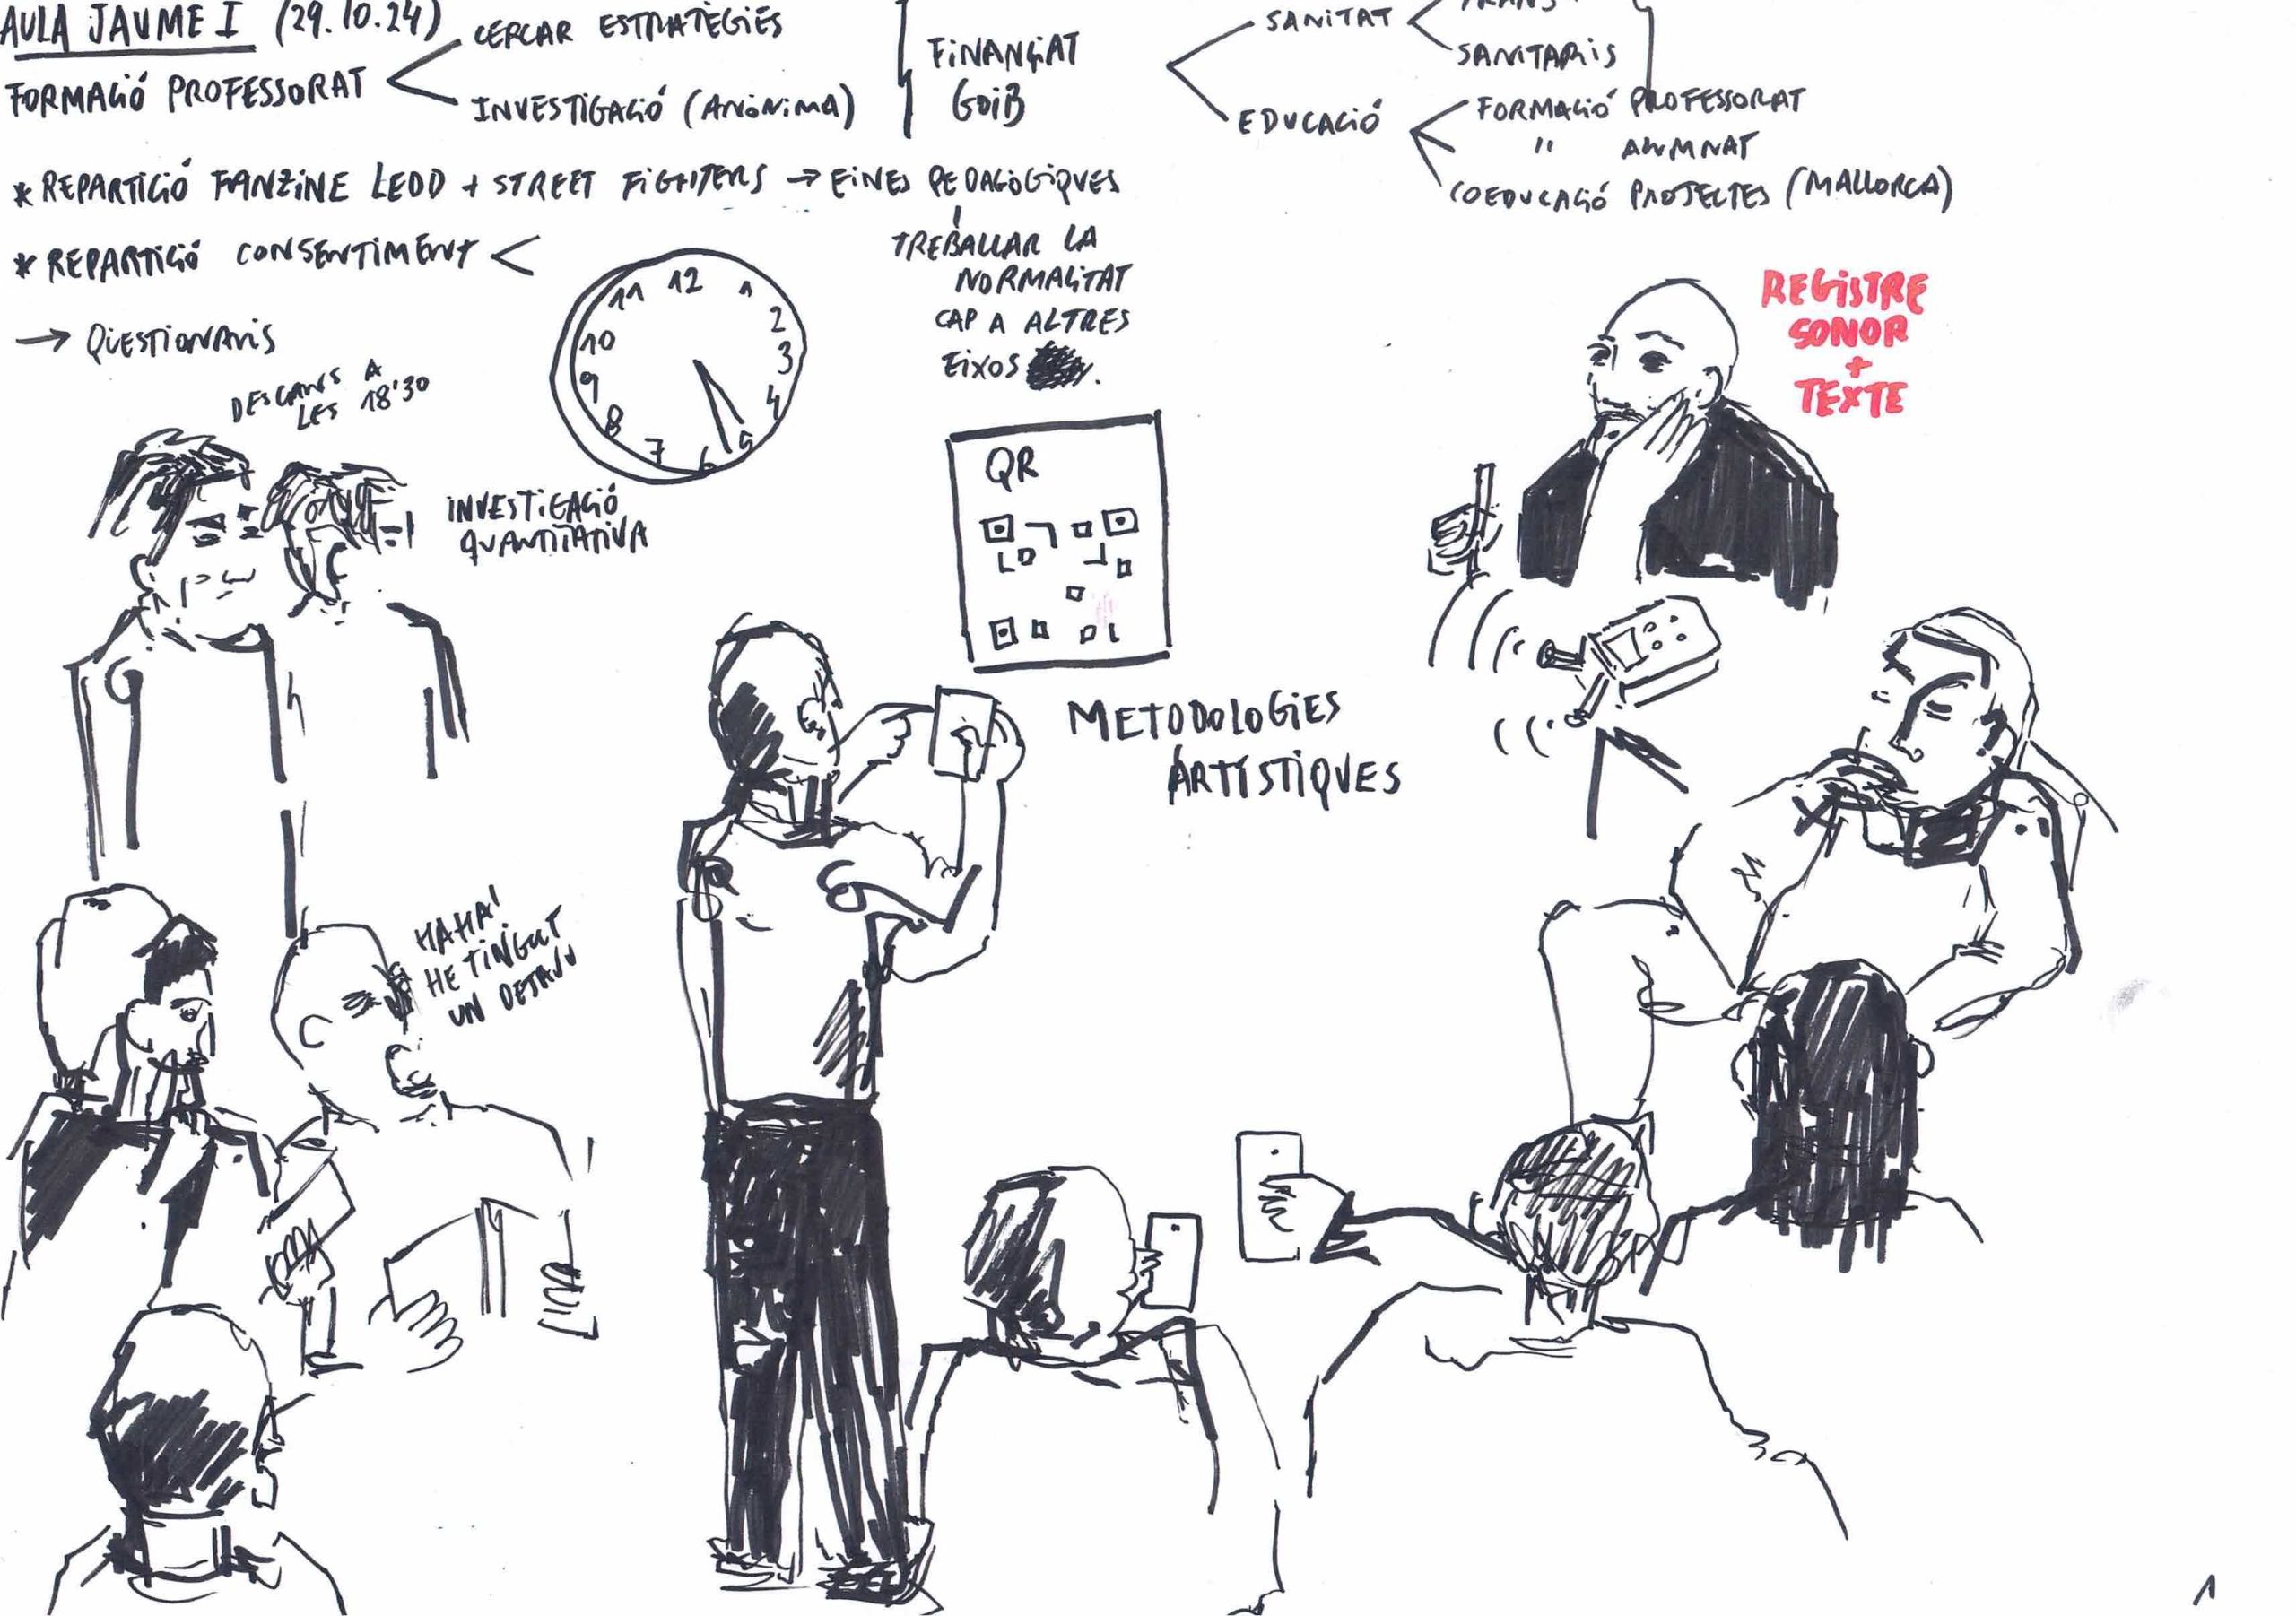 AULA JAUME I (29.10.24)
FORMACIÓ PROFESSORAT
CERCAR ESTRATÈGIES
INVESTIGACIÓ (ANÒNIMA)
FINANÇAT
GOIB
SANITAT
TRANS
SANITARIS
EDUCACIÓ
FORMACIÓ PROFESSORAT
" ALUMNAT
COEDUCACIÓ PROJECTES (MALLORCA)
* REPARTICIÓ FANZINE LEDD + STREET FIGHTERS → EINES PEDAGÒGIQUES
TREBALLAR LA
NORMALITAT
CAP A ALTRES
EIXOS
* REPARTICIÓ CONSENTIMENT <
→ QÜESTIONARIS
DESCANS A
LES 18'30
12
1
2
3
4
5
6
7
8
9
10
11
REGISTRE
SONOR
+
TEXTE
INVESTIGACIÓ
QUANTITATIVA
QR
METODOLOGIES
ARTÍSTIQUES
HAHA!
HE TINGUT
UN DEJAVU
1